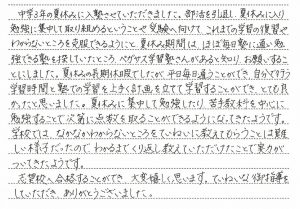 中学3年の夏休みに入塾させていただきました。部活を引退し、夏休みに入り
勉強に集中して取り組めるということで受験へ向けて、これまでの学習の復習や
わからないところを克服できるようにと、夏休み期間は、ほぼ毎日塾に通い勉
強できる塾を探していたところ、ペガサス学習塾さんがあると知り、お願いするこ
とにしました。夏休みの長期休暇でしたが、平日毎日通うことができ、自分で行う
学習時間と塾での学習を上手く計画を立てて学習することができ、とても良
かったと思いました。夏休みに集中して勉強したり、苦手教科を中心に
勉強することで次第に点数を取ることができるようになってきたようです。
学校では、なかなかわからないところをていねいに教えてもらうことは難
しい様子だったので、わかるまでくり返し教えていただけたことで実力が
ついてきたようです。
志望校へ合格することができ、大変嬉しく思います。ていねいな御指導を
していただき、ありがとうございました。